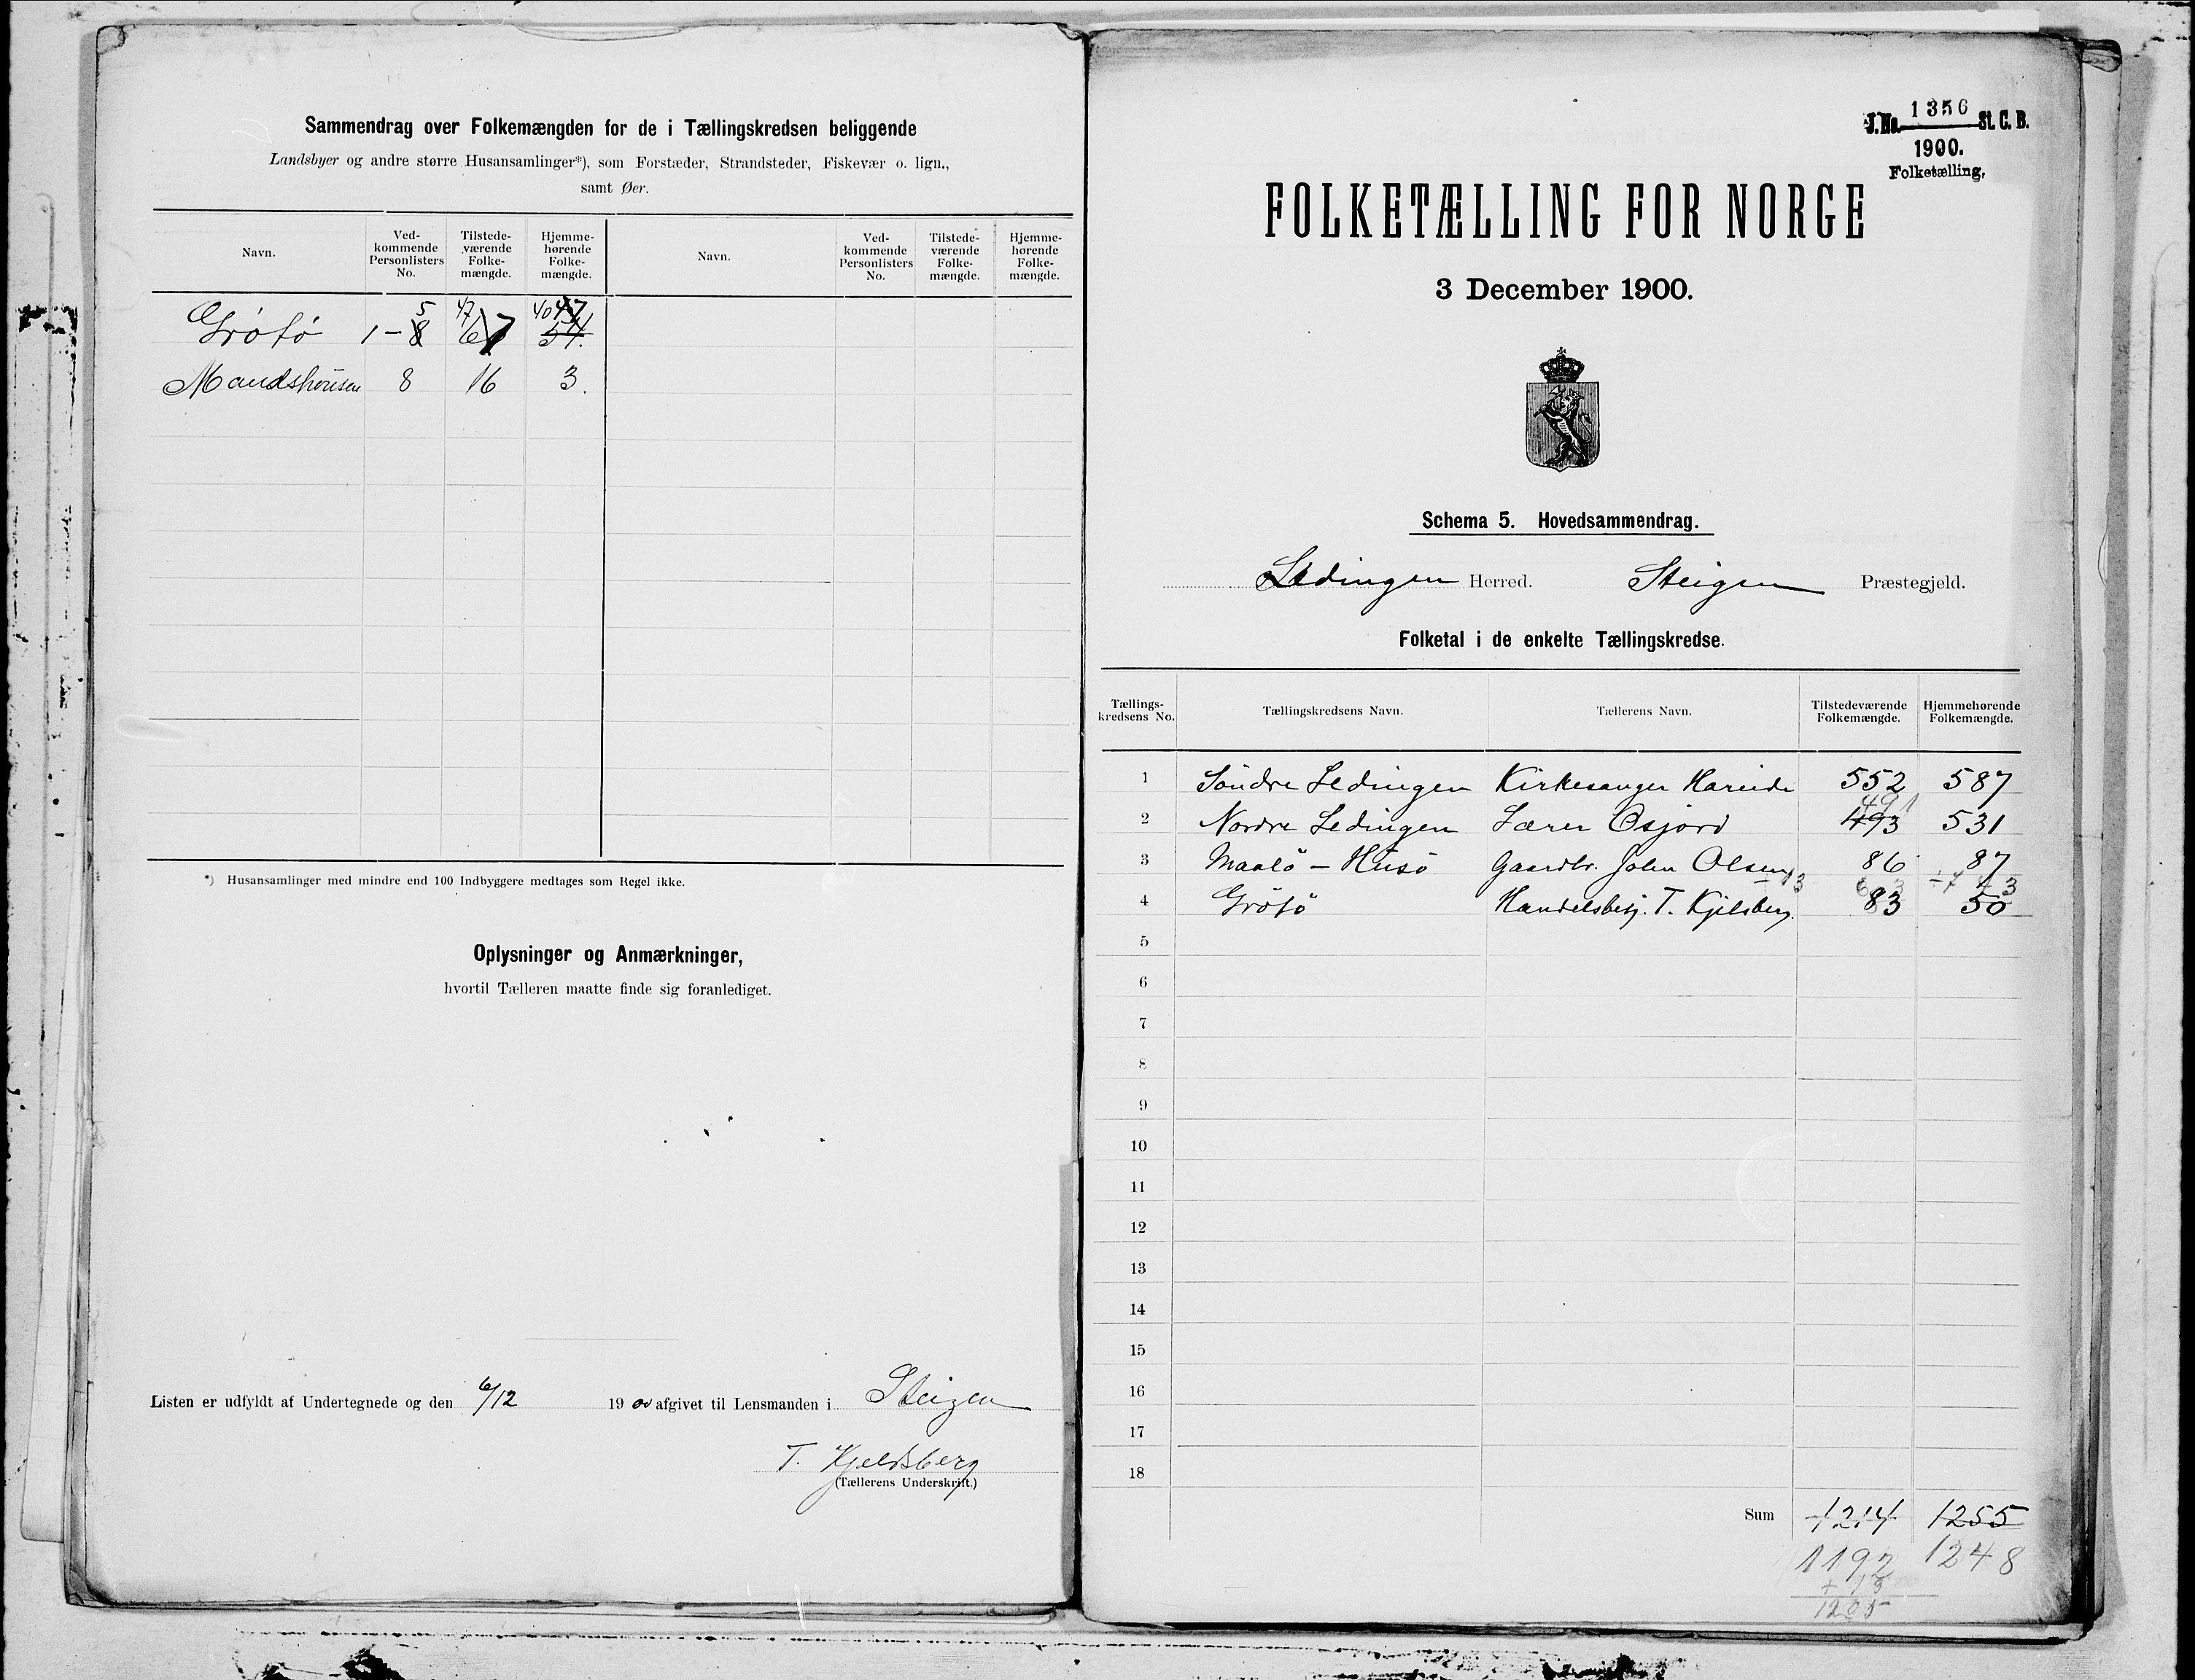 Sammendrag over Folkemængden for de i Tællingskredsen beliggende
Landsbyer og andre større Husansamlinger*), som Forstæder, Strandsteder, Fiskevær o. lign.,
samt Øer.
Navn. Ved-kommende Personlisters No. Tilstede-værende Folke-mængde. Hjemme-hørende Folke-mængde. Navn. Ved-kommende Personlisters No. Tilstede-værende Folke-mængde. Hjemme-hørende Folke-mængde.
5 47 40 47
Grötö 1 – 8 67 54.
Mandshousen 8 16 3.
*) Husansamlinger med mindre end 100 Indbyggere medtages som Regel ikke.
Oplysninger og Anmærkninger,
hvortil Tælleren maatte finde sig foranlediget.
Listen er udfyldt af Undertegnede og den 6/12 1900 afgivet til Lensmanden i Steigen
T. Kjeldsberg
(Tællerens Underskrift.)
J.No. 1356 St. C. B.
1900.
Folketælling.
FOLKETÆLLING FOR NORGE
3 December 1900.
Schema 5. Hovedsammendrag.
Ledingen Herred. Steigen Præstegjeld.
Folketal i de enkelte Tællingskredse.
Tællings-kredsens No. Tællingskredsens Navn. Tællerens Navn. Tilstedeværende Folkemængde. Hjemmehørende Folkemængde.
1 Söndre Ledingen Kirkesanger Hareide 552 587
491
2 Nordre Ledingen Lærer Osjord 493 531
3 Maalö – Husö Gaardbr. John Olsen 86 87
13 63 ÷7 43
4 Grötö Handelsbesj. T. Kjelsberg. 83 50
5
6
7
8
9
10
11
12
13
14
15
16
17
18
Sum 1214 1255
1192 1248
+ 13
1205